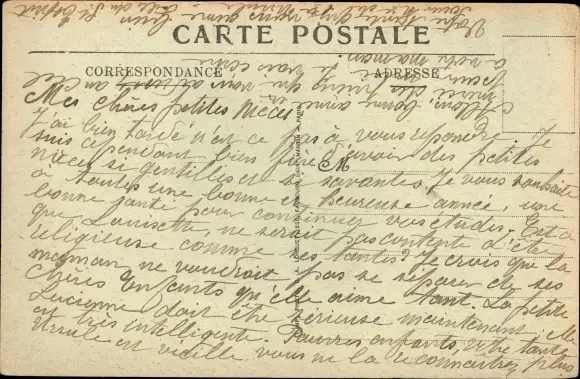 CARTE POSTALE
CORRESPONDANCE
ADRESSE
Mes chères petites Nièces
J'ai bien tardé n'est ce pas à vous répondre. Je
suis cependant bien fière d'avoir des petites
nièces si gentilles et si savantes. Je vous souhaite
à toutes une bonne et heureuse année, une
bonne santé pour continuer vos études. Est ce
que Louisette, ne serait pas contente d'être
religieuse comme ses tantes? Je crois que la
maman ne voudrait pas se séparer de ses
chères Enfants qu'elle aime tant. La petite
Lucienne doit être sérieuse maintenant. Elle
est très intelligente. Pauvres enfants, votre tante
Ursule est vieille vous ne la reconnaîtrez plus
au ciel
Allons, bonne année
à votre maman